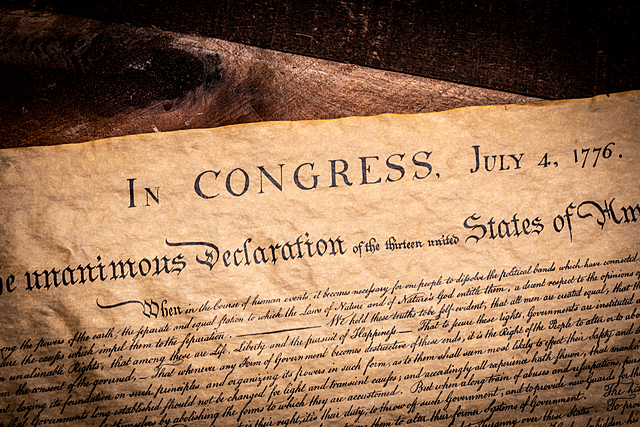 In CONGRESS, July 4, 1776.
e unanimous Declaration of the thirteen united States of Am
When in the Course of human events, it becomes necessary for one people to dissolve the political bands which have connected
ong the powers of the earth, the separate and equal station to which the Laws of Nature and of Nature's God entitle them, a decent respect to the opinions of
the causes which impel them to the separation. We hold these truths to be self-evident, that all men are created equal, that the
unalienable Rights, that among these are Life, Liberty and the pursuit of Happiness. — That to secure these rights, Governments are instituted
the consent of the governed, — That whenever any Form of Government becomes destructive of these ends, it is the Right of the People to alter or to abo
laying its foundation on such principles and organizing its powers in such form, as to them shall seem most likely to effect their Safety and
that Governments long established should not be changed for light and transient causes; and accordingly all experience hath shewn, that
themselves by abolishing the forms to which they are accustomed. But when a long train of abuses and usurpations,
right, it is their duty, to throw off such Government, and to provide new Guards for
them to alter their former Systems of Government. The
Tyranny over these States. To